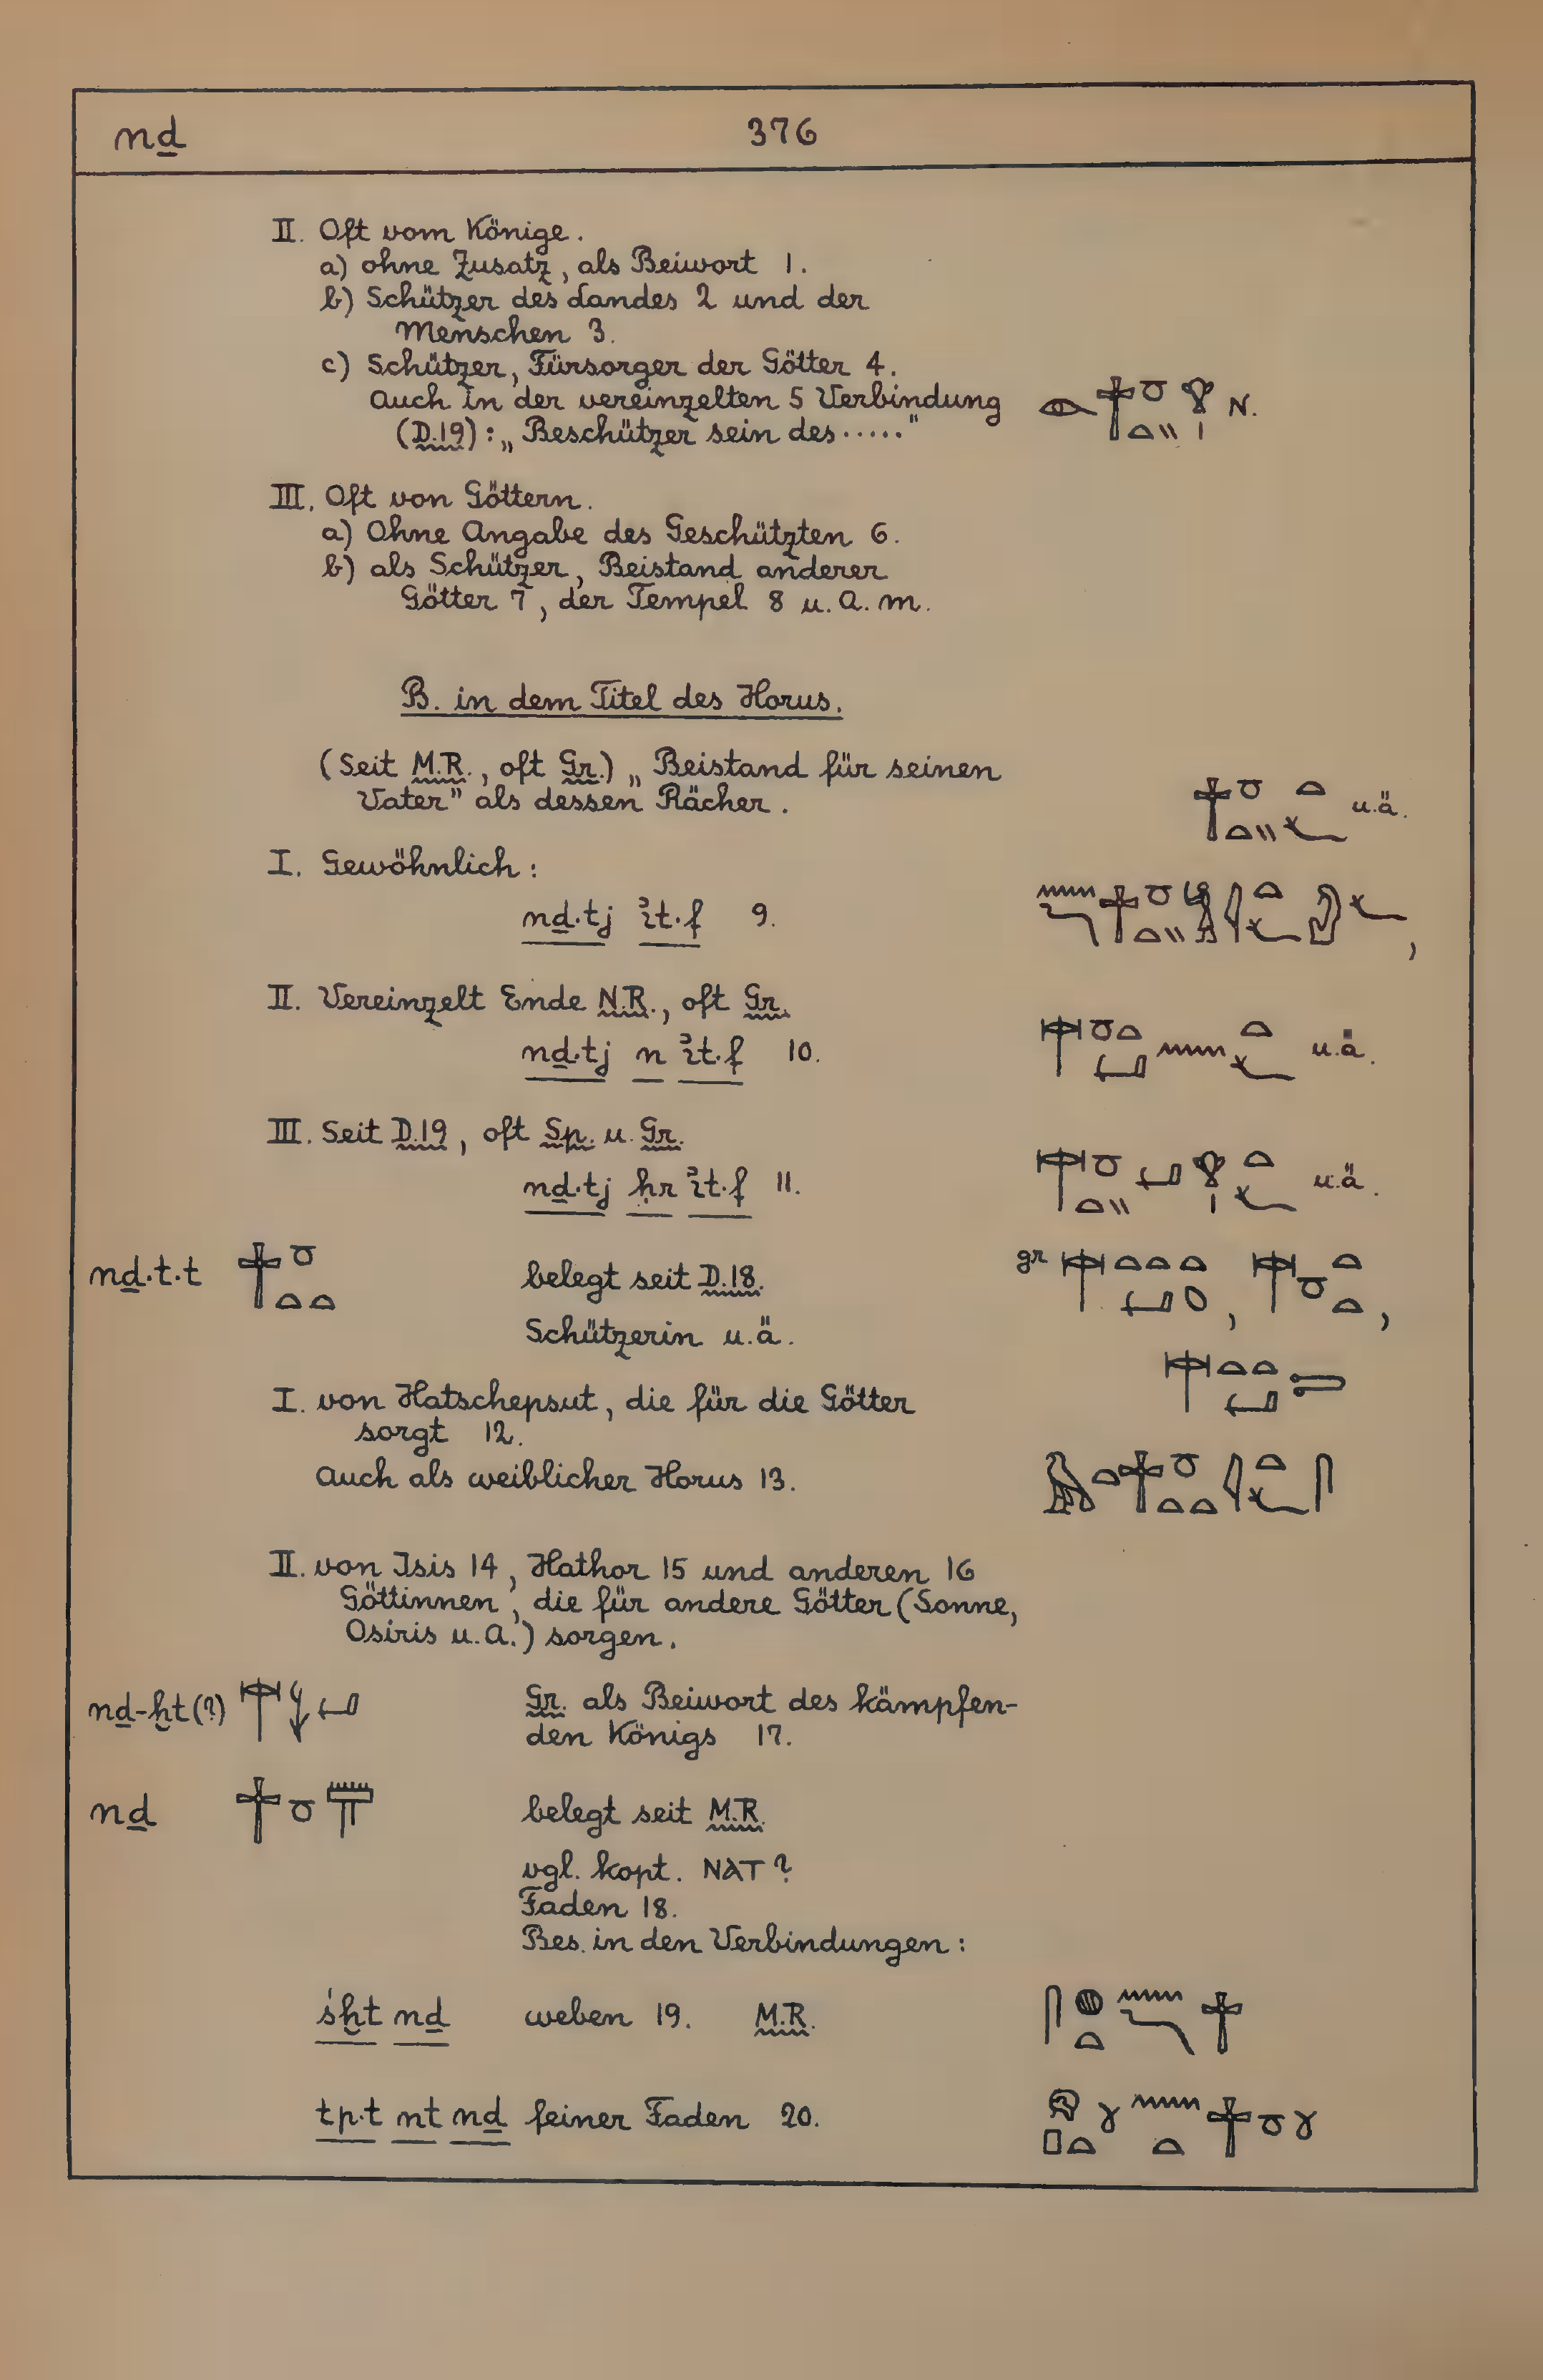 nḏ 376
II. Oft vom Könige.
a) ohne Zusatz, als Beiwort 1.
b) Schützer des Landes 2 und der
Menschen 3.
c) Schützer, Fürsorger der Götter 4.
Auch in der vereinzelten 5 Verbindung N.
(D.19): „Beschützer sein des ....."
III. Oft von Göttern.
a) Ohne Angabe des Geschützten 6.
b) als Schützer, Beistand anderer
Götter 7, der Tempel 8 u. A. m.
B. in dem Titel des Horus.
(Seit M.R., oft Gr.) „Beistand für seinen
Vater" als dessen Rächer. u.ä.
I. Gewöhnlich:
nḏ·tj ꞽt·f 9.
II. Vereinzelt Ende N.R., oft Gr.
nḏ·tj n ꞽt·f 10. u.ä.
III. Seit D.19, oft Sp. u. Gr.
nḏ·tj ḥr ꞽt·f 11. u.ä.
nḏ·t·t belegt seit D.18. gr
Schützerin u.ä.
I. von Hatschepsut, die für die Götter
sorgt 12.
Auch als weiblicher Horus 13.
II. von Isis 14, Hathor 15 und anderen 16
Göttinnen, die für andere Götter (Sonne,
Osiris u. A.) sorgen.
nḏ-ḫt(?) Gr. als Beiwort des kämpfen-
den Königs 17.
nḏ belegt seit M.R.
vgl. kopt. ⲚⲀⲦ?
Faden 18.
Bes. in den Verbindungen:
śḫt nḏ weben 19. M.R.
tp·t nt nḏ feiner Faden 20.